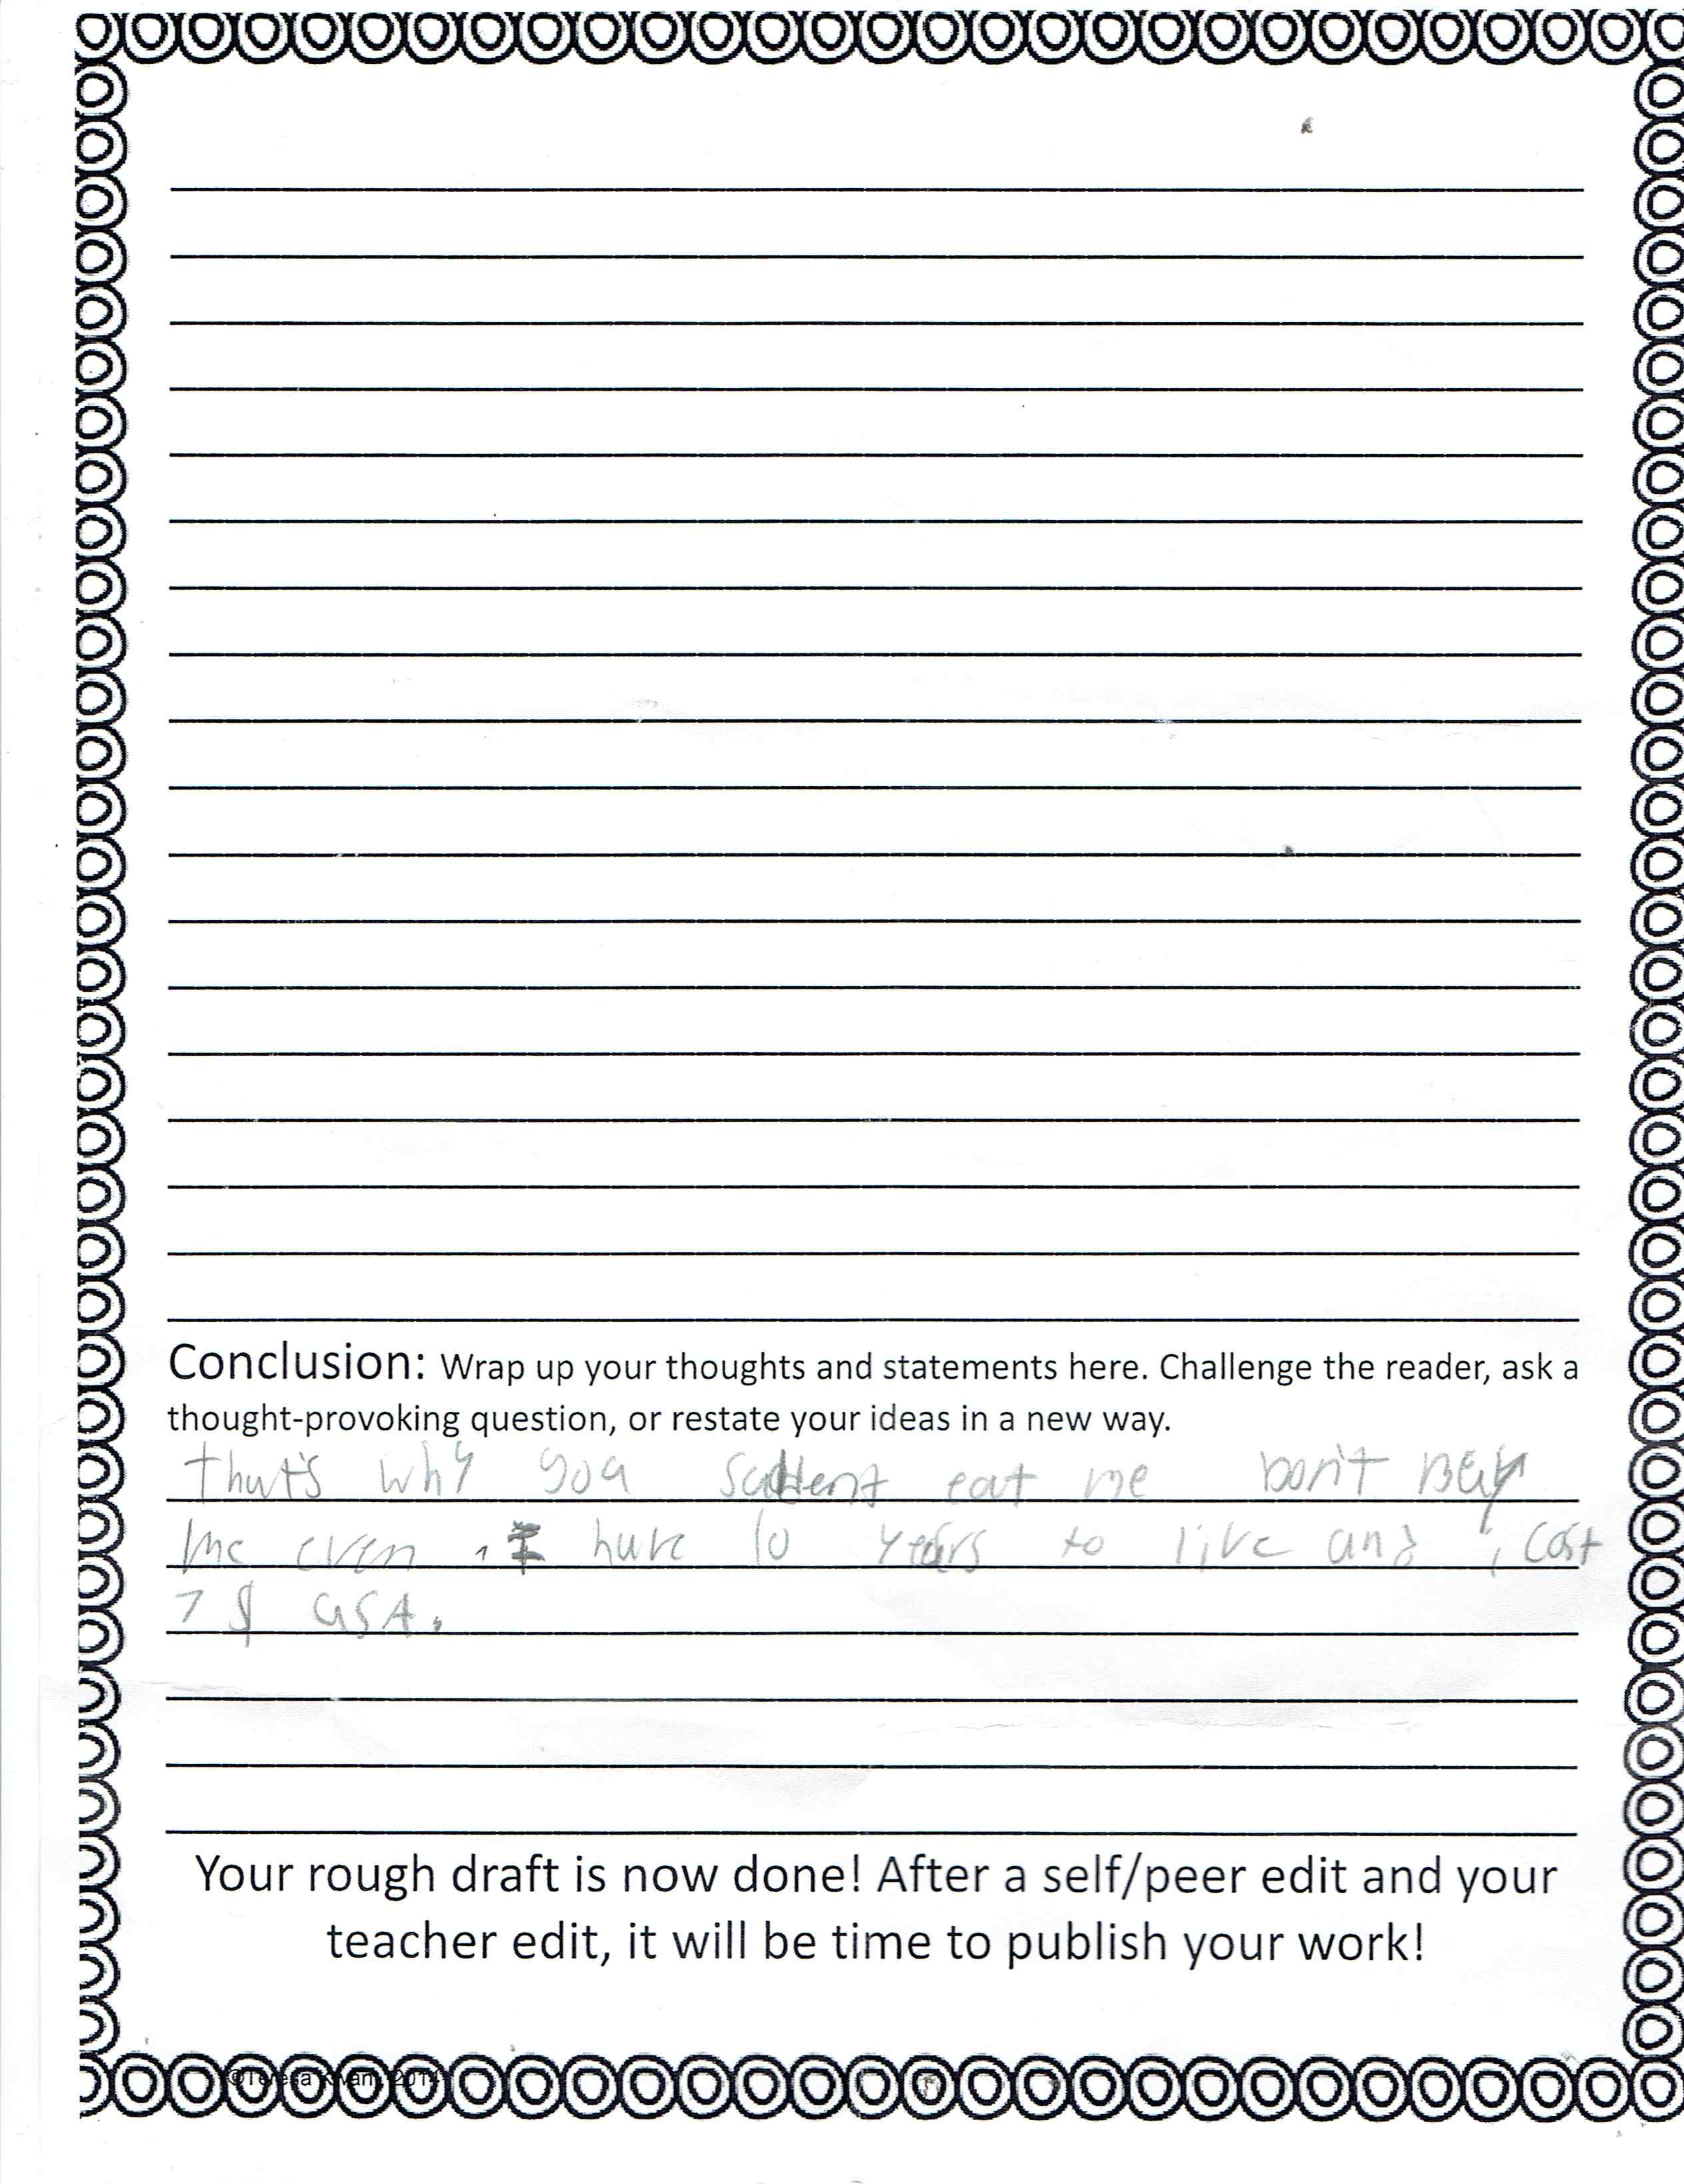 Conclusion: Wrap up your thoughts and statements here. Challenge the reader, ask a
thought-provoking question, or restate your ideas in a new way.
that's why you eat me don't Bay
me even I have 10 years to live and i cost
7 $ USA.
Your rough draft is now done! After a self/peer edit and your
teacher edit, it will be time to publish your work!